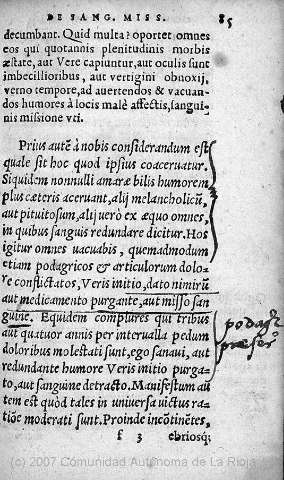 DE SANG. MISS. 85
decumbant. Quid multa? oportet omnes
eos qui quotannis plenitudinis morbis
æstate, aut Vere capiuntur, aut oculis sunt
imbecillioribus, aut vertigini obnoxij,
verno tempore, ad auertendos & vacuan-
dos humores à locis malè affectis, sangui-
nis missione vti.
Prius autē à nobis considerandum est
quale sit hoc quod ipsius coaceruatur.
Siquidem nonnulli amaræ bilis humorem
plus cæteris aceruant, alij melancholicū,
aut pituitosum, alij verò ex æquo omnes,
in quibus sanguis redundare dicitur. Hos
igitur omnes vacuabis, quemadmodum
etiam podagricos & articulorum dolo-
re conflictatos, Veris initio, dato nimirū
aut medicamento purgante, aut misso san
guine. Equidem complures qui tribus
aut quatuor annis per interualla pedum
doloribus molestati sunt, ego sanaui, aut
redundante humore Veris initio purga-
to, aut sanguine detracto. Manifestum au
tem est quòd tales in vniuersa victus ra-
tiōe moderati sunt. Proinde incōtinētes,
f 3 ebriosq;
(c) 2007 Comunidad Autónoma de La Rioja